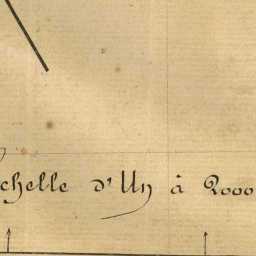 chelle d'Un à 2000